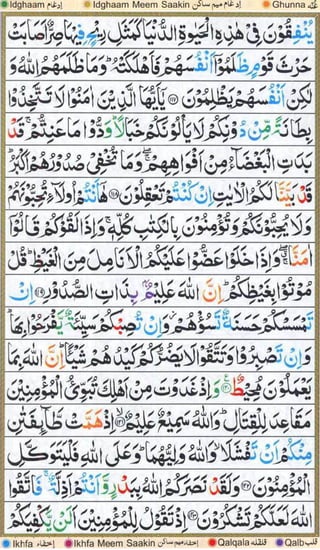 Idghaam ادغام Idghaam Meem Saakin ادغام میم ساکن Ghunna غنّہ
يُنْفِقُوْنَ فِيْ هٰذِهِ الْحَيٰوةِ الدُّنْيَا كَمَثَلِ رِيْحٍ فِيْهَا صِرٌّ اَصَابَتْ
حَرْثَ قَوْمٍ ظَلَمُوْۤا اَنْفُسَهُمْ فَاَهْلَكَتْهُ ؕ وَمَا ظَلَمَهُمُ اللّٰهُ وَ
لٰكِنْ اَنْفُسَهُمْ يَظْلِمُوْنَ ﴿۱۱۷﴾ يٰۤاَيُّهَا الَّذِيْنَ اٰمَنُوْا لَا تَتَّخِذُوْا
بِطَانَةً مِّنْ دُوْنِكُمْ لَا يَاْلُوْنَكُمْ خَبَالًا ؕ وَدُّوْا مَا عَنِتُّمْ ۚ قَدْ
بَدَتِ الْبَغْضَآءُ مِنْ اَفْوَاهِهِمْ ۖۚ وَمَا تُخْفِيْ صُدُوْرُهُمْ اَكْبَرُ ؕ
قَدْ بَيَّنَّا لَكُمُ الْاٰيٰتِ اِنْ كُنْتُمْ تَعْقِلُوْنَ ﴿۱۱۸﴾ هٰۤاَنْتُمْ اُولَآءِ تُحِبُّوْنَهُمْ
وَلَا يُحِبُّوْنَكُمْ وَتُؤْمِنُوْنَ بِالْكِتٰبِ كُلِّهٖ ۚ وَاِذَا لَقُوْكُمْ قَالُوْۤا
اٰمَنَّا ۖۗۚ وَاِذَا خَلَوْا عَضُّوْا عَلَيْكُمُ الْاَنَامِلَ مِنَ الْغَيْظِ ؕ قُلْ
مُوْتُوْا بِغَيْظِكُمْ ؕ اِنَّ اللّٰهَ عَلِيْمٌۢ بِذَاتِ الصُّدُوْرِ ﴿۱۱۹﴾ اِنْ
تَمْسَسْكُمْ حَسَنَةٌ تَسُؤْهُمْ ؗ وَاِنْ تُصِبْكُمْ سَيِّئَةٌ يَّفْرَحُوْا بِهَا ؕ
وَاِنْ تَصْبِرُوْا وَتَتَّقُوْا لَا يَضُرُّكُمْ كَيْدُهُمْ شَيْـًٔا ؕ اِنَّ اللّٰهَ بِمَا
يَعْمَلُوْنَ مُحِيْطٌ ﴿۱۲۰﴾ وَاِذْ غَدَوْتَ مِنْ اَهْلِكَ تُبَوِّئُ الْمُؤْمِنِيْنَ
مَقَاعِدَ لِلْقِتَالِ ؕ وَاللّٰهُ سَمِيْعٌ عَلِيْمٌ ﴿۱۲۱﴾ اِذْ هَمَّتْ طَّآئِفَتٰنِ
مِنْكُمْ اَنْ تَفْشَلَا ۙ وَاللّٰهُ وَلِيُّهُمَا ؕ وَعَلَى اللّٰهِ فَلْيَتَوَكَّلِ
الْمُؤْمِنُوْنَ ﴿۱۲۲﴾ وَلَقَدْ نَصَرَكُمُ اللّٰهُ بِبَدْرٍ وَّاَنْتُمْ اَذِلَّةٌ ۚ فَاتَّقُوا
اللّٰهَ لَعَلَّكُمْ تَشْكُرُوْنَ ﴿۱۲۳﴾ اِذْ تَقُوْلُ لِلْمُؤْمِنِيْنَ اَلَنْ يَّكْفِيَكُمْ
Ikhfa اخفاء Ikhfa Meem Saakin اخفاء میم ساکن Qalqala قلقلہ Qalb قلب